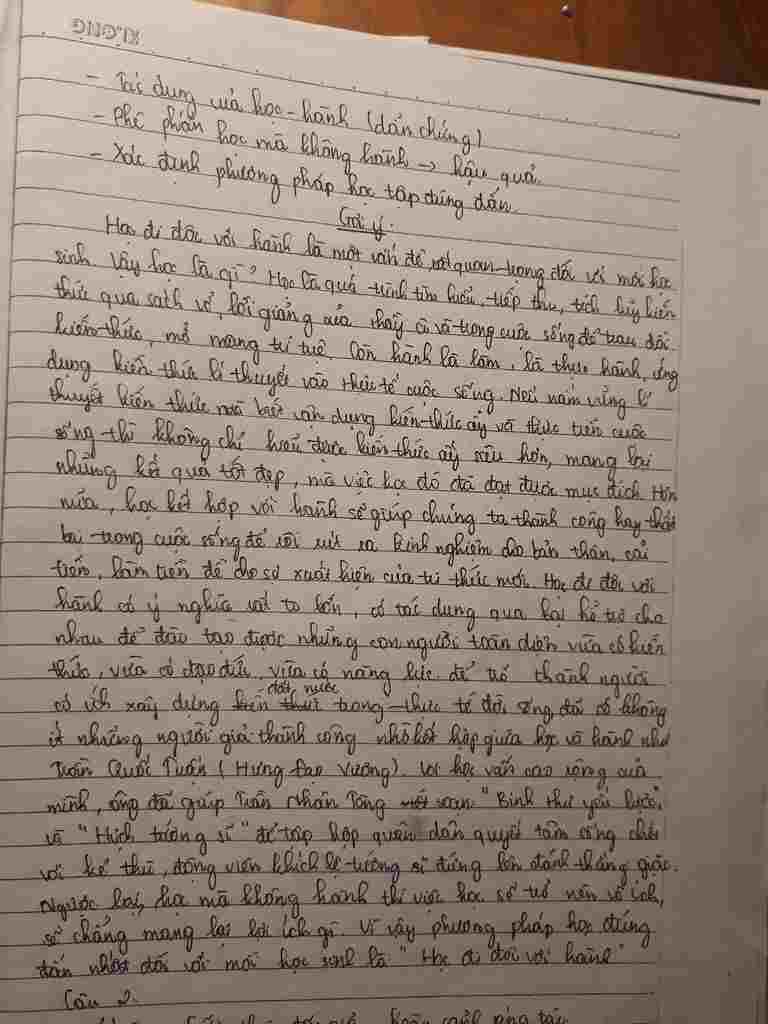 KLONG
- Tác dụng của học - hành (dẫn chứng)
- Phê phán học mà không hành → hậu quả.
- Xác định phương pháp học tập đúng đắn.
Gợi ý:
Học đi đôi với hành là một vấn đề rất quan trọng đối với mỗi học
sinh. Vậy học là gì? Học là quá trình tìm hiểu, tiếp thu, tích lũy kiến
thức qua sách vở, lời giảng của thầy cô và trong cuộc sống để trau dồi
kiến thức, mở mang trí tuệ. Còn hành là làm, là thực hành, ứng
dụng kiến thức lí thuyết vào thực tế cuộc sống. Nếu nắm vững lí
thuyết kiến thức mà biết vận dụng kiến thức ấy vào thực tiễn cuộc
sống thì không chỉ hiểu được kiến thức ấy sâu hơn, mang lại
những kết quả tốt đẹp, mà việc học đó đã đạt được mục đích. Hơn
nữa, học kết hợp với hành sẽ giúp chúng ta thành công hay thất
bại trong cuộc sống để rồi rút ra kinh nghiệm cho bản thân, cải
tiến, làm tiền đề cho sự xuất hiện của tri thức mới. Học đi đôi với
hành có ý nghĩa rất to lớn, có tác dụng qua lại hỗ trợ cho
nhau để đào tạo được những con người toàn diện vừa có kiến
thức, vừa có đạo đức, vừa có năng lực để trở thành người
có ích xây dựng đất nước trong thực tế đời sống, đã có không
ít những người giỏi thành công nhờ kết hợp giữa học và hành như
Trần Quốc Tuấn (Hưng Đạo Vương). Với học vấn cao rộng của
mình, ông đã giúp Trần Nhân Tông soạn "Binh thư yếu lược",
và "Hịch tướng sĩ" để tập hợp quân dân quyết tâm cống chối
với kẻ thù, động viên khích lệ tướng sĩ đứng lên đánh thắng giặc.
Ngược lại, học mà không hành thì việc học sẽ trở nên vô ích,
sẽ chẳng mang lại lợi ích gì. Vì vậy phương pháp học đúng
đắn nhất đối với mỗi học sinh là "Học đi đôi với hành"
Câu 2.
hoàn cảnh sáng tác